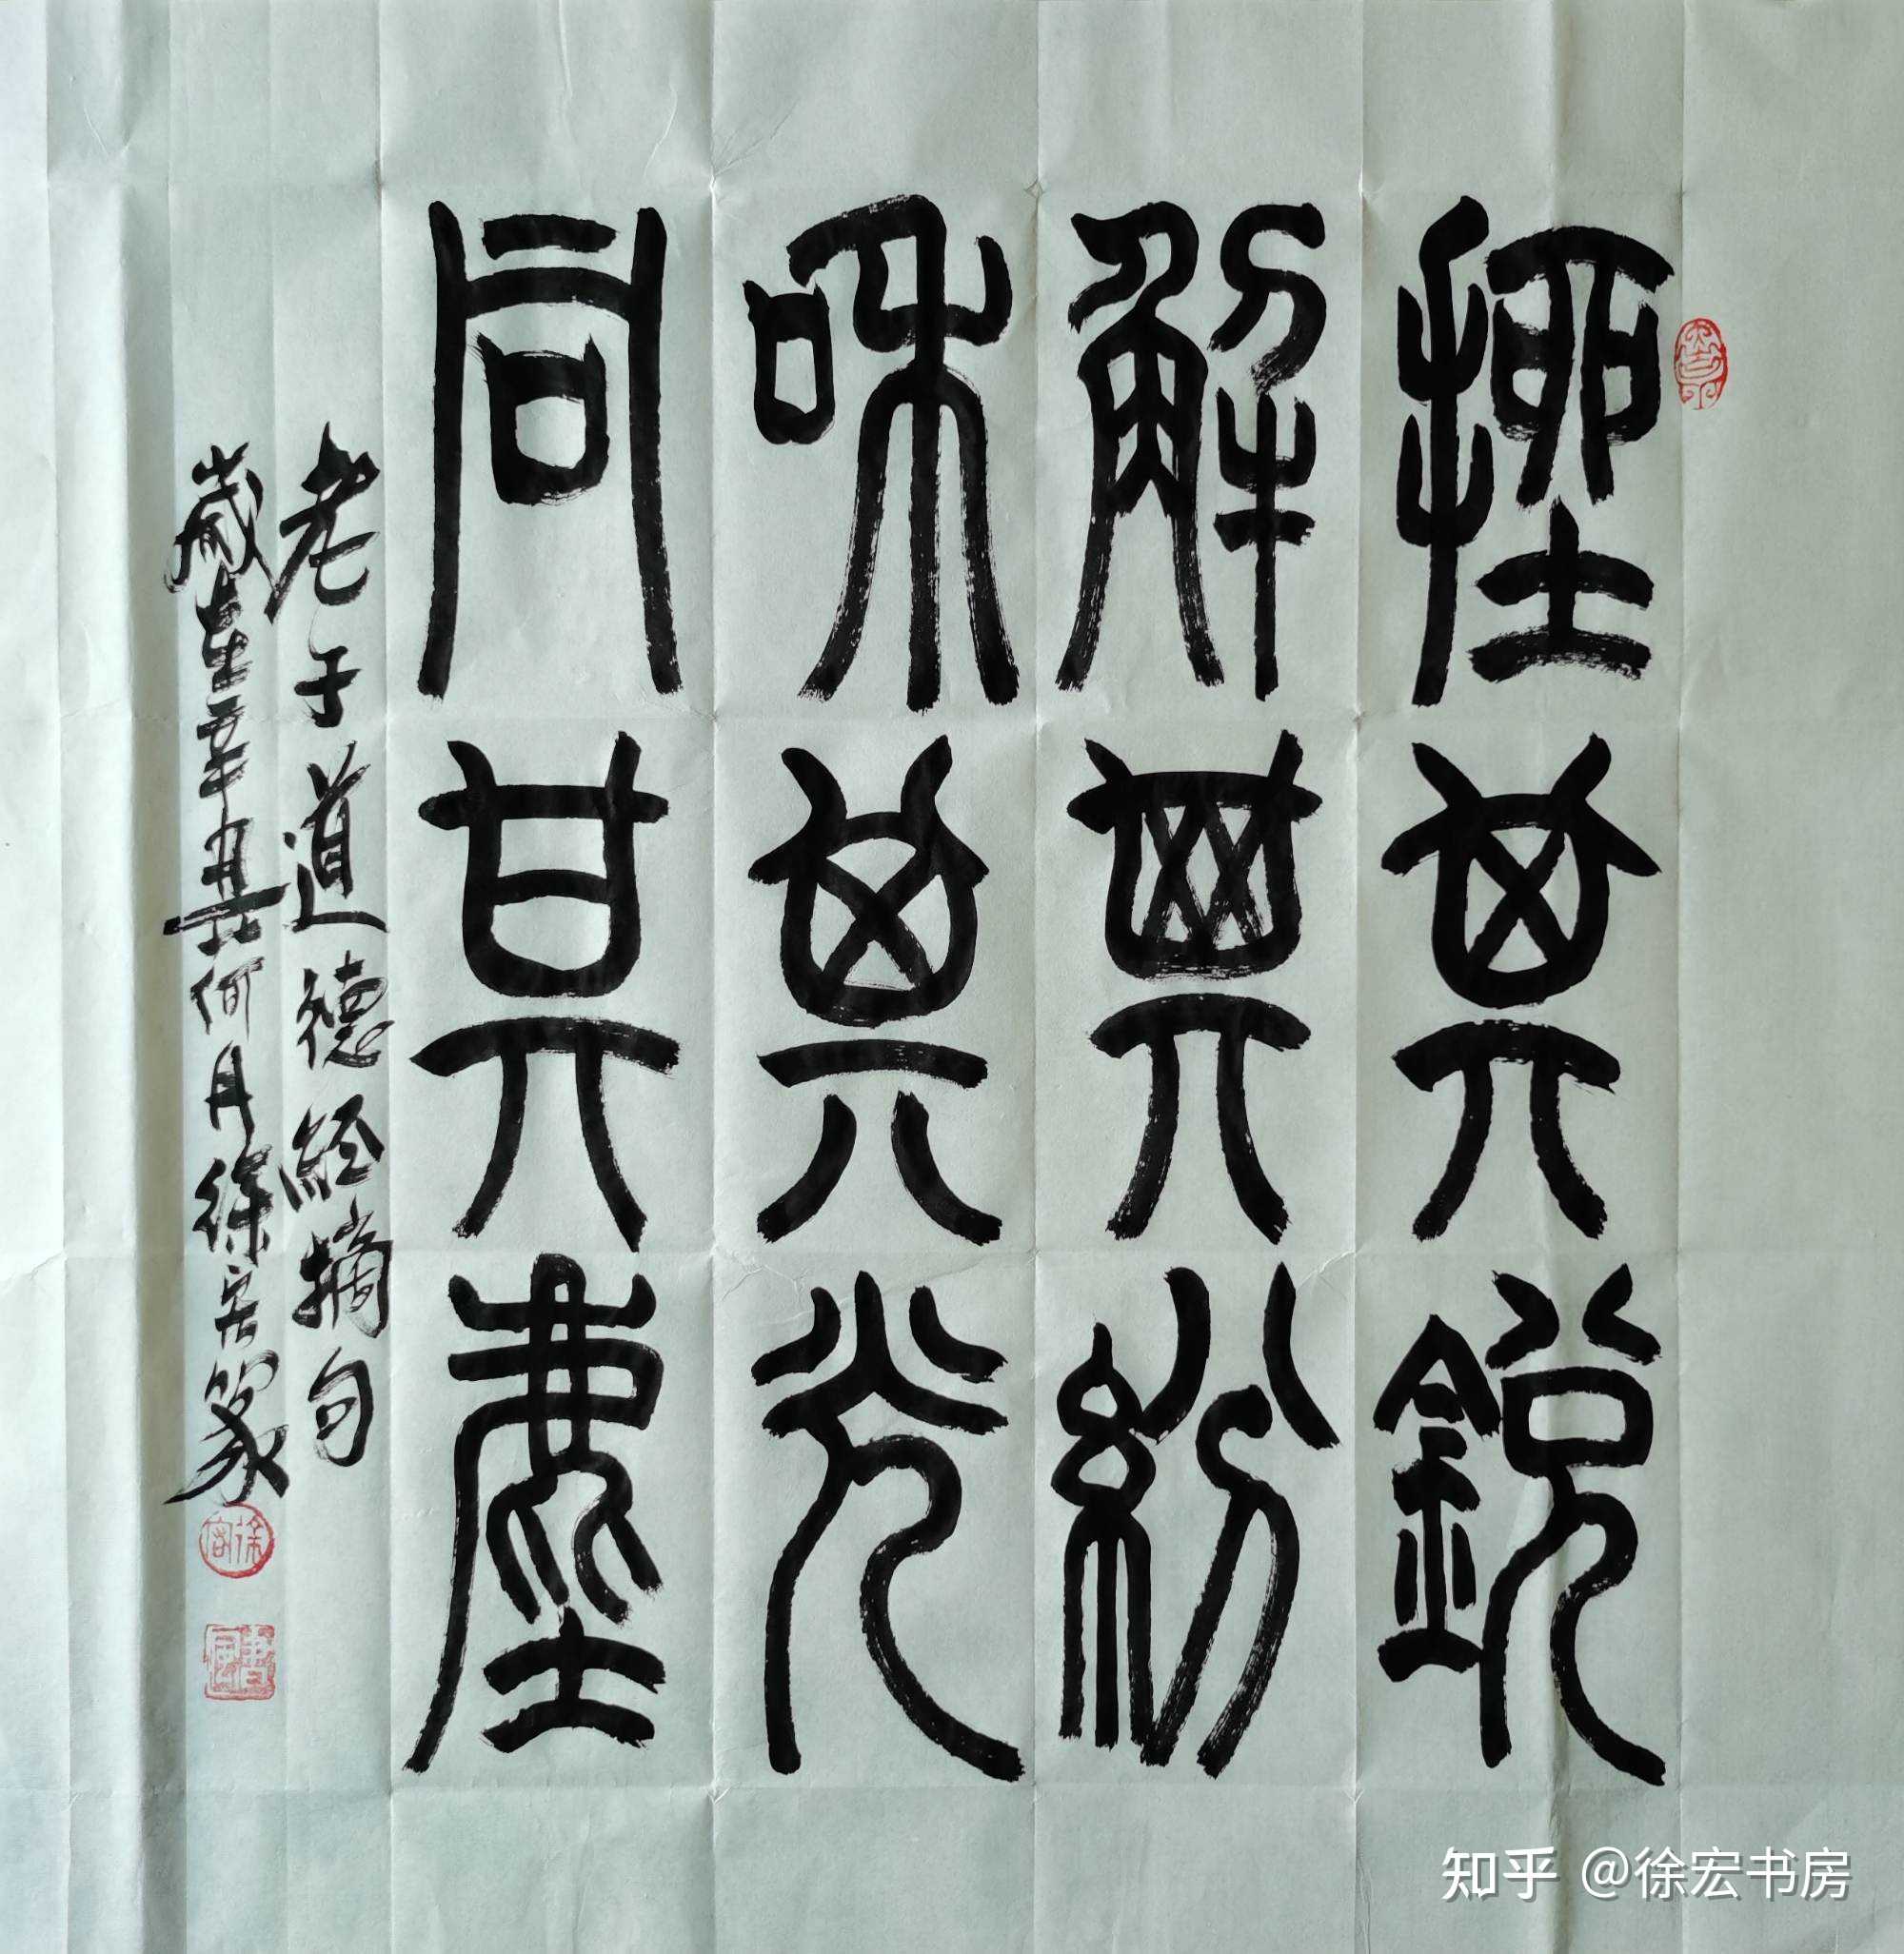 挫其銳
解其紛
和其光
同其塵
老子道德經摘句
歲在辛丑荷月徐宏篆
徐宏
知乎 @徐宏书房